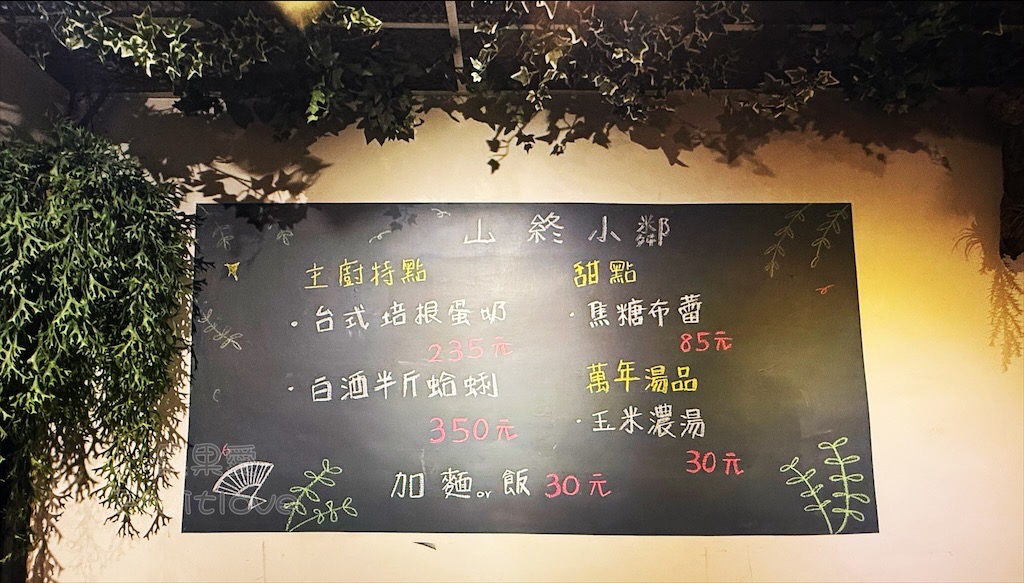 山終小鄰
主廚特點
・台式培根蛋奶
235元
・白酒半斤蛤蜊
350元
甜點
・焦糖布蕾
85元
萬年湯品
・玉米濃湯
30元
加麵or飯30元
果愛
itlove